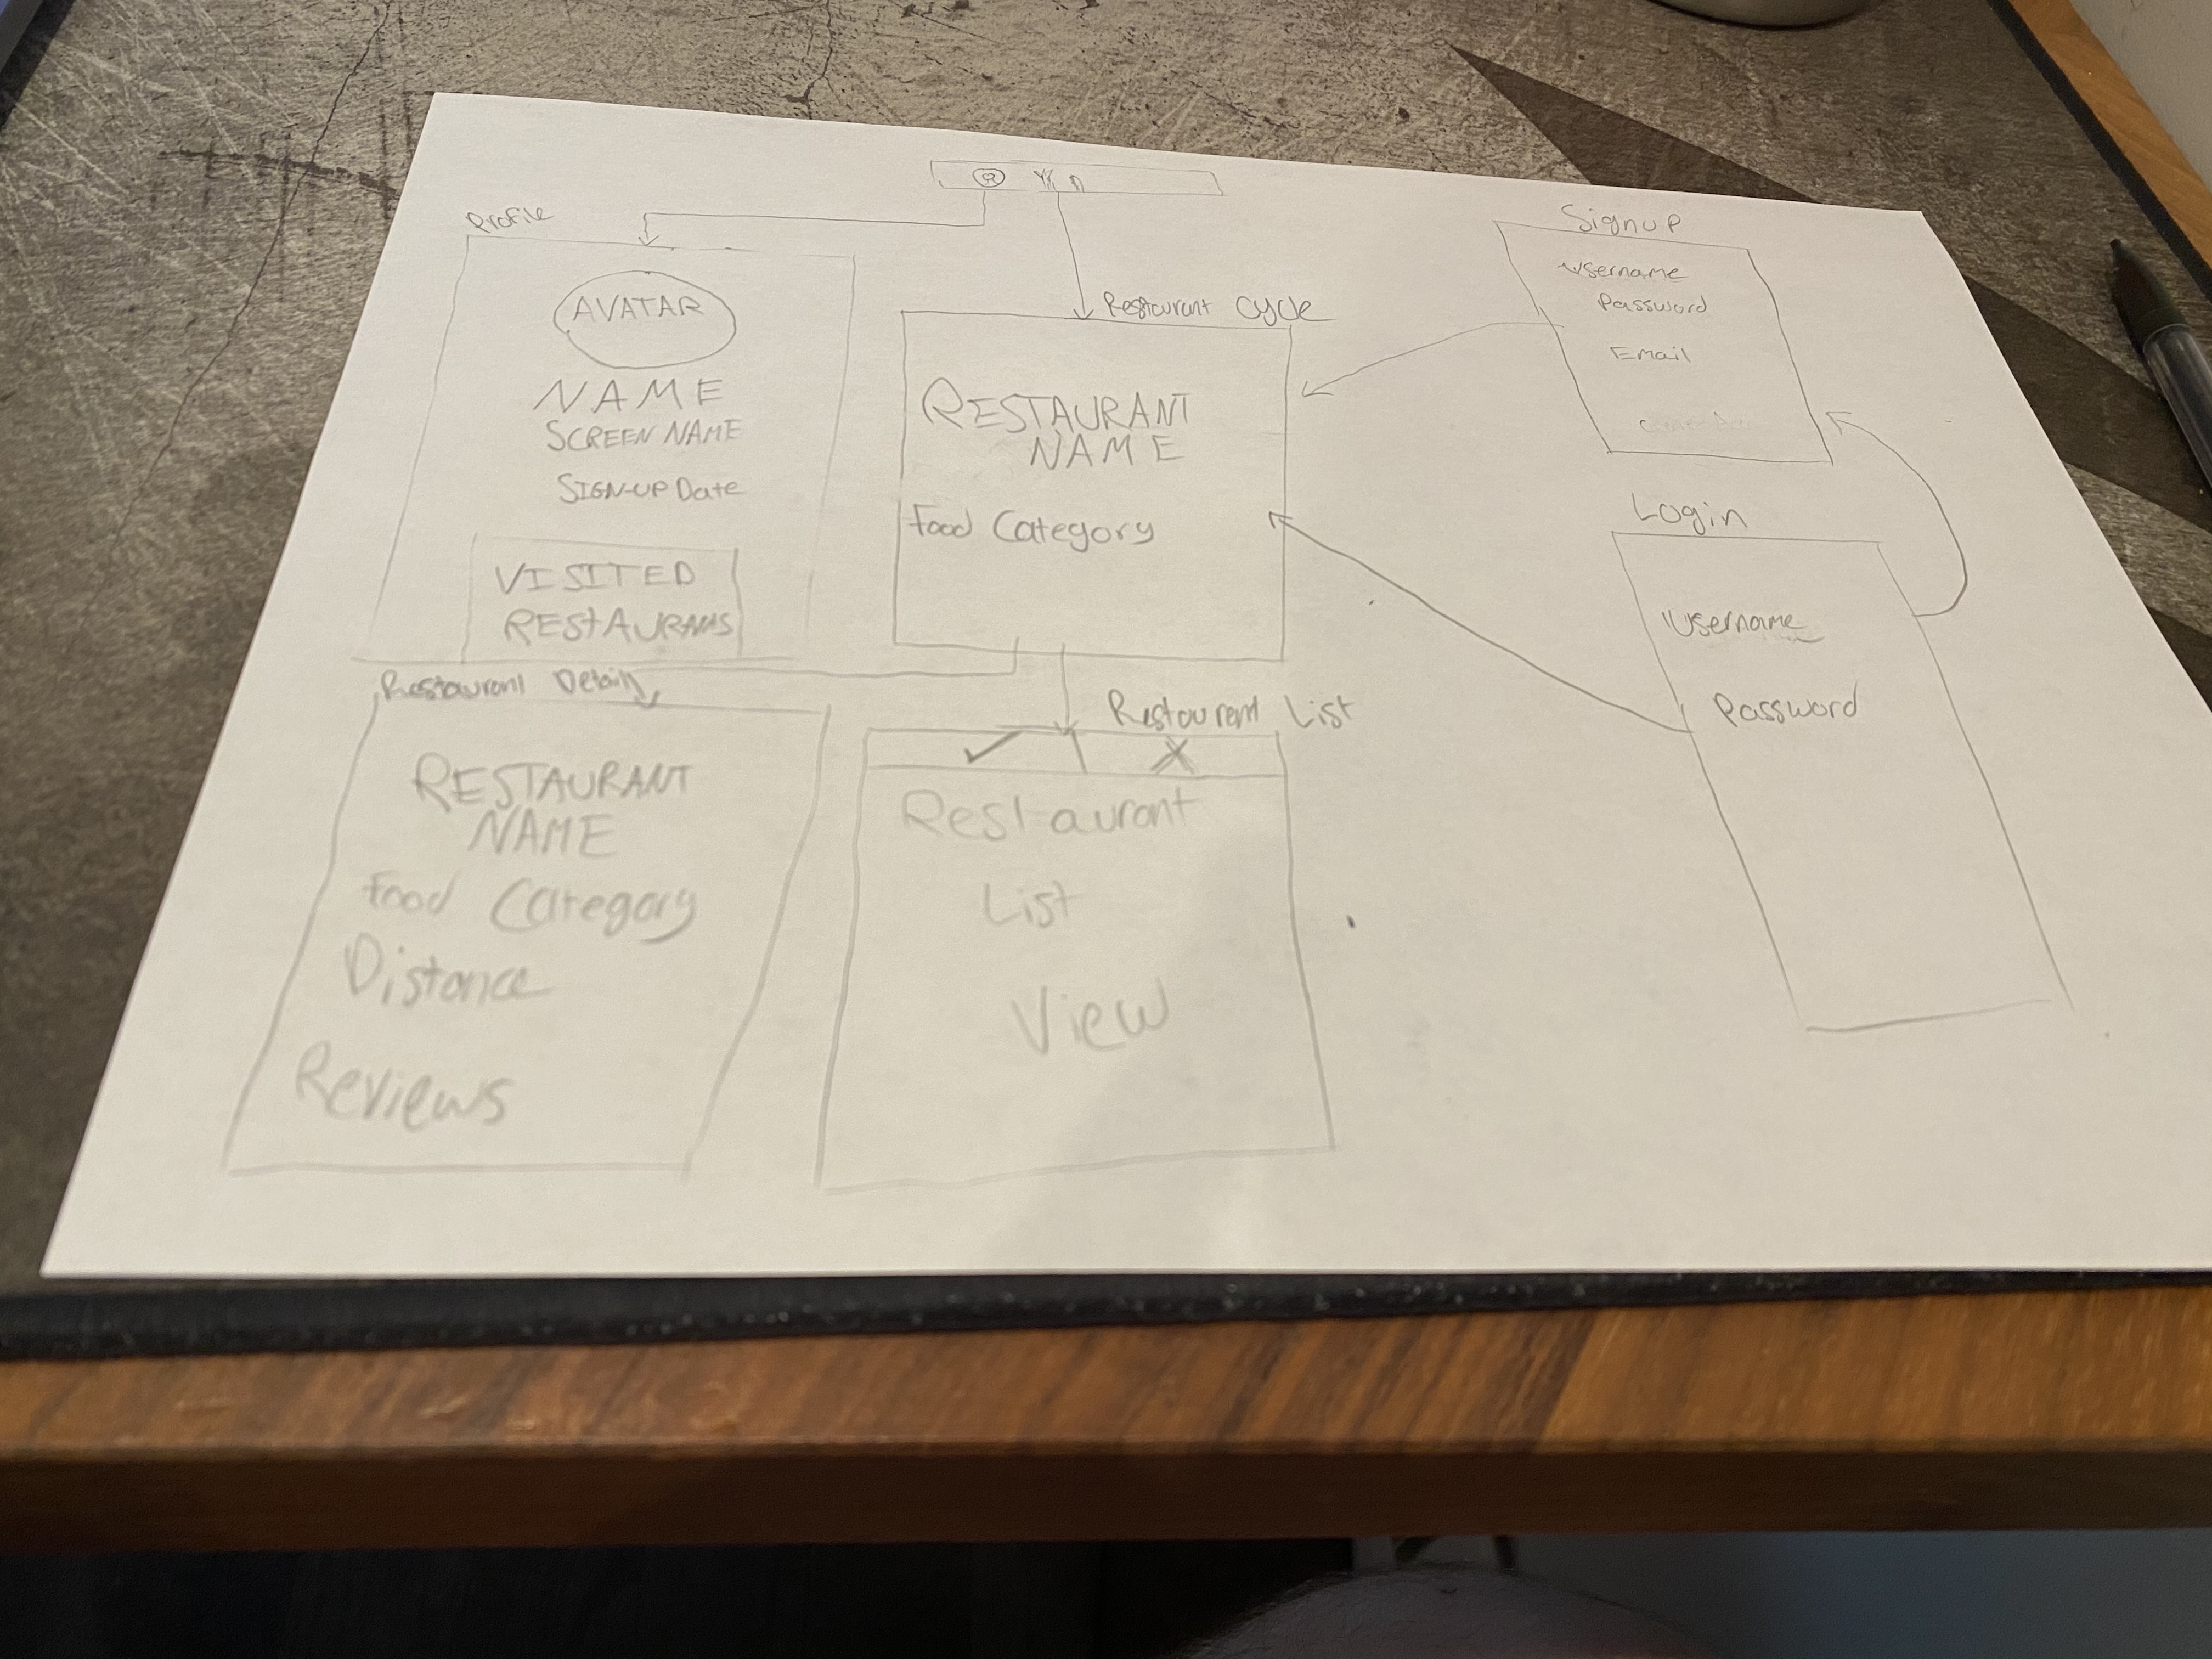 Profile
AVATAR
NAME
SCREEN NAME
SIGN-UP Date
VISITED
RESTAURANTS
Restaurant Cycle
RESTAURANT
NAME
Food Category
Signup
Username
Password
Email
Login
Username
Password
Restaurant Details
RESTAURANT
NAME
Food Category
Distance
Reviews
Restaurant List
✓ X
Restaurant
List
View